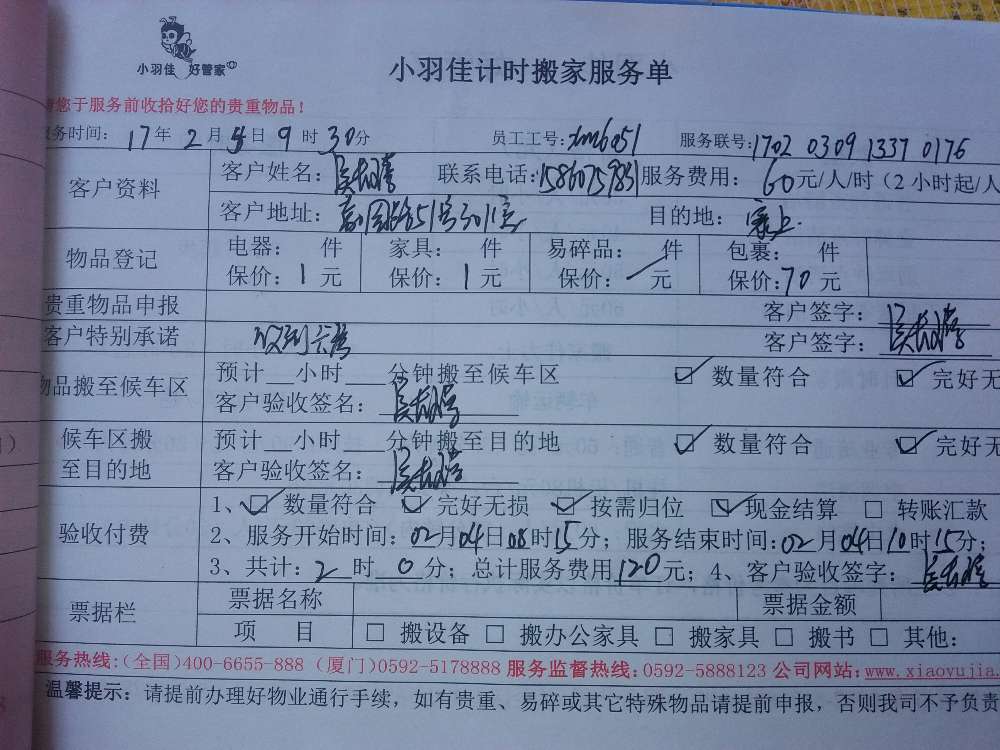 小羽佳 好管家
小羽佳计时搬家服务单
您于服务前收拾好您的贵重物品！
服务时间： 17年 2月 日 9时 30分 员工工号：xm6051 服务联号：1702 0309 1337 0176
客户资料 客户姓名： 联系电话： 服务费用： 60元/人/时（2小时起/人
客户地址： 目的地：
物品登记 电器： 件 家具： 件 易碎品： 件 包裹： 件
保价：1元 保价：1元 保价： 元 保价：70元
贵重物品申报 客户签字：
客户特别承诺 客户签字：
物品搬至候车区 预计 小时 分钟搬至候车区 数量符合 完好无
客户验收签名：
候车区搬至目的地 预计 小时 分钟搬至目的地 数量符合 完好无
客户验收签名：
验收付费 1、数量符合 完好无损 按需归位 现金结算 转账汇款
2、服务开始时间：02月04日08时15分；服务结束时间：02月04日10时15分；
3、共计：2时0分；总计服务费用120元；4、客户验收签字：
票据栏 票据名称 票据金额
项 目 搬设备 搬办公家具 搬家具 搬书 其他：
服务热线：(全国)400-6655-888 (厦门)0592-5178888 服务监督热线：0592-5888123 公司网站：www.xiaoyujia.
温馨提示：请提前办理好物业通行手续，如有贵重、易碎或其它特殊物品请提前申报，否则我司不予负责